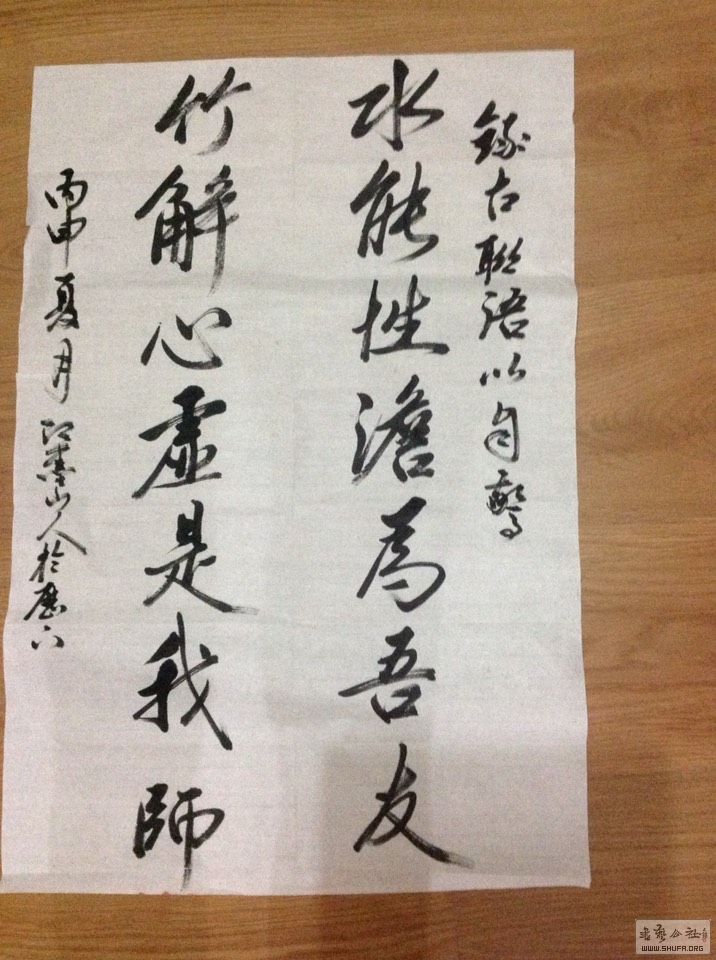 錄古聯語以自警
水能性澹為吾友
竹解心虛是我師
丙申夏月 山人於歷下
書藝公社
WWW.SHUFA.ORG